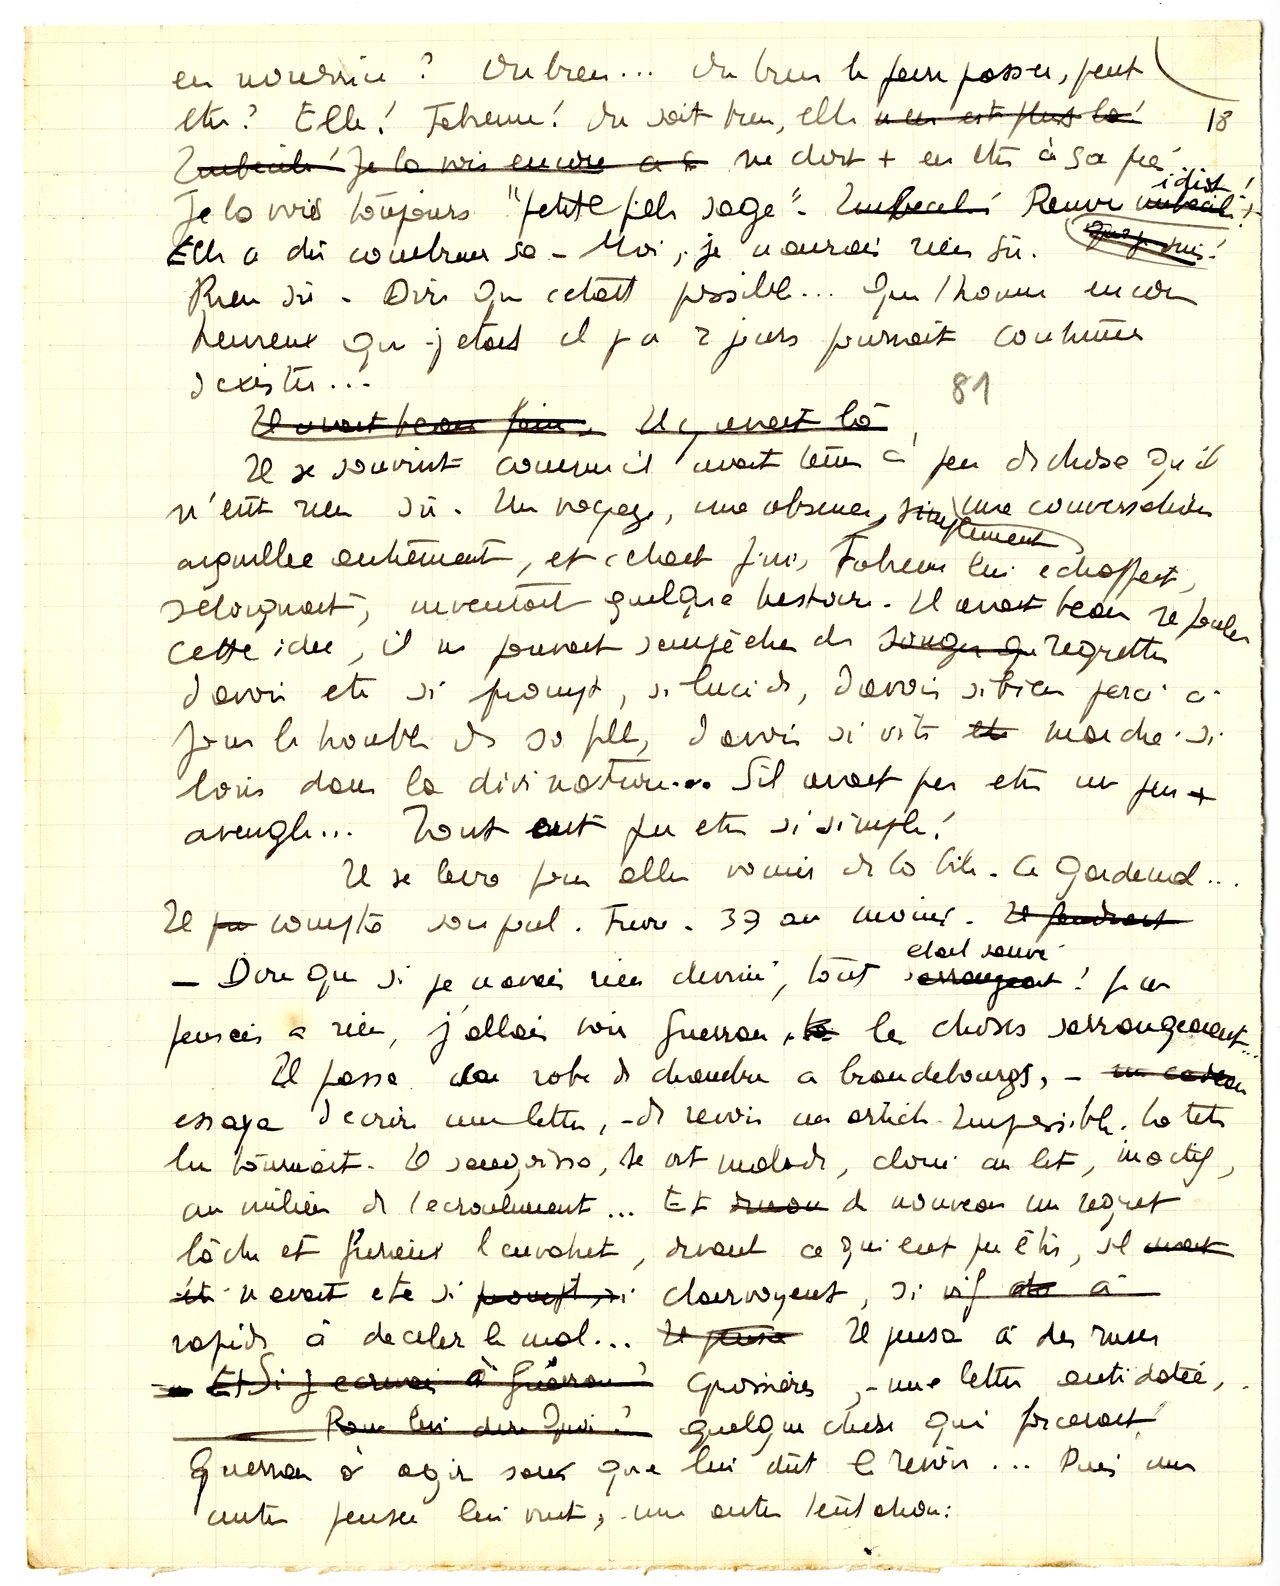 en nourrice ? Ou bien... Ou bien le faire passer, peut
etre ? Elle ! Fabienne ! On sait bien, elle n'en est plus là !
Imbécile ! Je la vois encore a 6 ne doit + en etre à sa
Je la voies toujours "petite fille sage". Imbecile ! Pauvre imbecile idiot !
Elle a dû combiner ça - Moi, je n'aurais rien su. que je suis !
18
Rien su - Dire que c'etait possible... Que l'homme encore
heureux que j'etais il y a 2 jours pourrait continuer
d'exister...
81
Il avait beau faire. Il y avait là
Il se souvint comme il avait tenu à peu de chose qu'il
n'eût rien su. Un voyage, une absence, simplement une conversation
aiguillée autrement, et c'etait fini, Fabienne lui echappait,
s'éloignait, inventait quelque histoire. Il avait beau refouler
cette idée, il ne pouvait s'empêcher de songer que regretter
d'avoir ete si prompt, si lucide, d'avoir si bien percé à
jour le trouble de sa fille, d'avoir si vite ete marché si
loin dans la divination... S'il avait pu etre un peu +
aveugle... Tout eut pu etre si simple !
Il se leva pour aller vomir de la bile. Ce Gardenal...
Il compta son pouls. Fievre. 39 au moins. Il faudrait
— Dire que si je n'avais rien deviné, tout s'arrangeait etait sauvé ! Je ne
pensais a rien, j'allais voir Guerran, les choses s'arrangeaient...
Il passa une robe de chambre a brandebourgs, - un cadeau
essaya d'ecrire une lettre, - de revoir un article. Impossible. La tete
lui tournait. Il s'angoissa, se vit malade, cloué au lit, inactif,
au milieu de l'ecroulement... Et de nouveau un regret
lâche et furieux l'envahit, devant ce qui eut pu être, s'il avait
été n'avait ete si prompt, si clairvoyant, si vif à
rapide à deceler le mal... Il pensa Il pensa à des ruses
- Et Si j'ecrivais à Guerran ? grossières, - une lettre antidatée,
Pour lui dire Quoi ? quelque chose qui forcerait
Guerran à agir sans que lui dût le revoir... Puis une
autre pensée lui vint, une autre tentation :